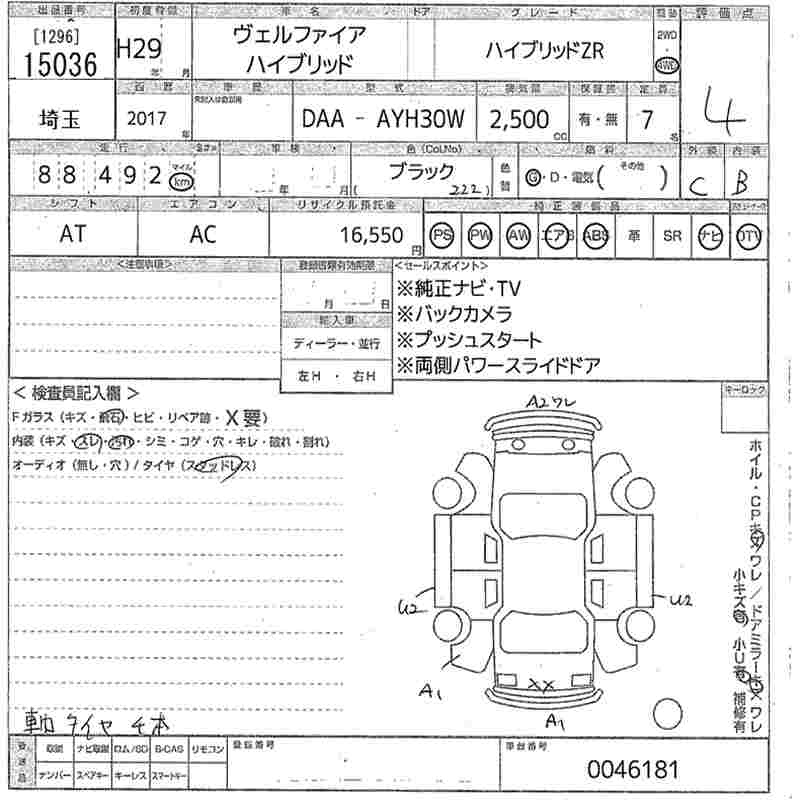 出品番号 初度登録 車名 ドア グレード 駆動 評価点
[1296]
15036 H29 年 月 ヴェルファイア ハイブリッド ハイブリッドZR 2WD 4WD 4
埼玉 西暦 車歴 型式 排気量 保証書 定員
2017 年 DAA - AYH30W 2,500 cc 有・無 7 名
走行 車検 色(CoLNo) 燃料 外装 内装
88,492 マイル km 年 月 ブラック (222) 色替 G・D・電気( その他 ) C B
シフト エアコン リサイクル預託金 純正装備品
AT AC 16,550 円 PS PW AW エアB ABS 革 SR ナビ DTV
<注意事項> 登録書類有効期限 <セールスポイント>
月 日
※純正ナビ・TV
※バックカメラ
※プッシュスタート
※両側パワースライドドア
輸入車
ディーラー・並行
左H ・ 右H
キーロック
< 検査員記入欄 >
Fガラス (キズ・飛石・ヒビ・リペア跡・X要)
内装 (キズ・スレ・汚れ・シミ・コゲ・穴・キレ・破れ・割れ)
オーディオ (無し・穴) / タイヤ (スタッドレス)
A2ワレ
U2
U2
A1
XX
A1
ホイル・CPキズ/ワレ/ドアミラーキズ×ワレ
小キズ有 小U有 補修有
車内タイヤ4本
取説 ナビ取説 ロム/SD B-CAS リモコン 登録番号 車台番号
ナンバー スペアキー キーレス スマートキー
0046181